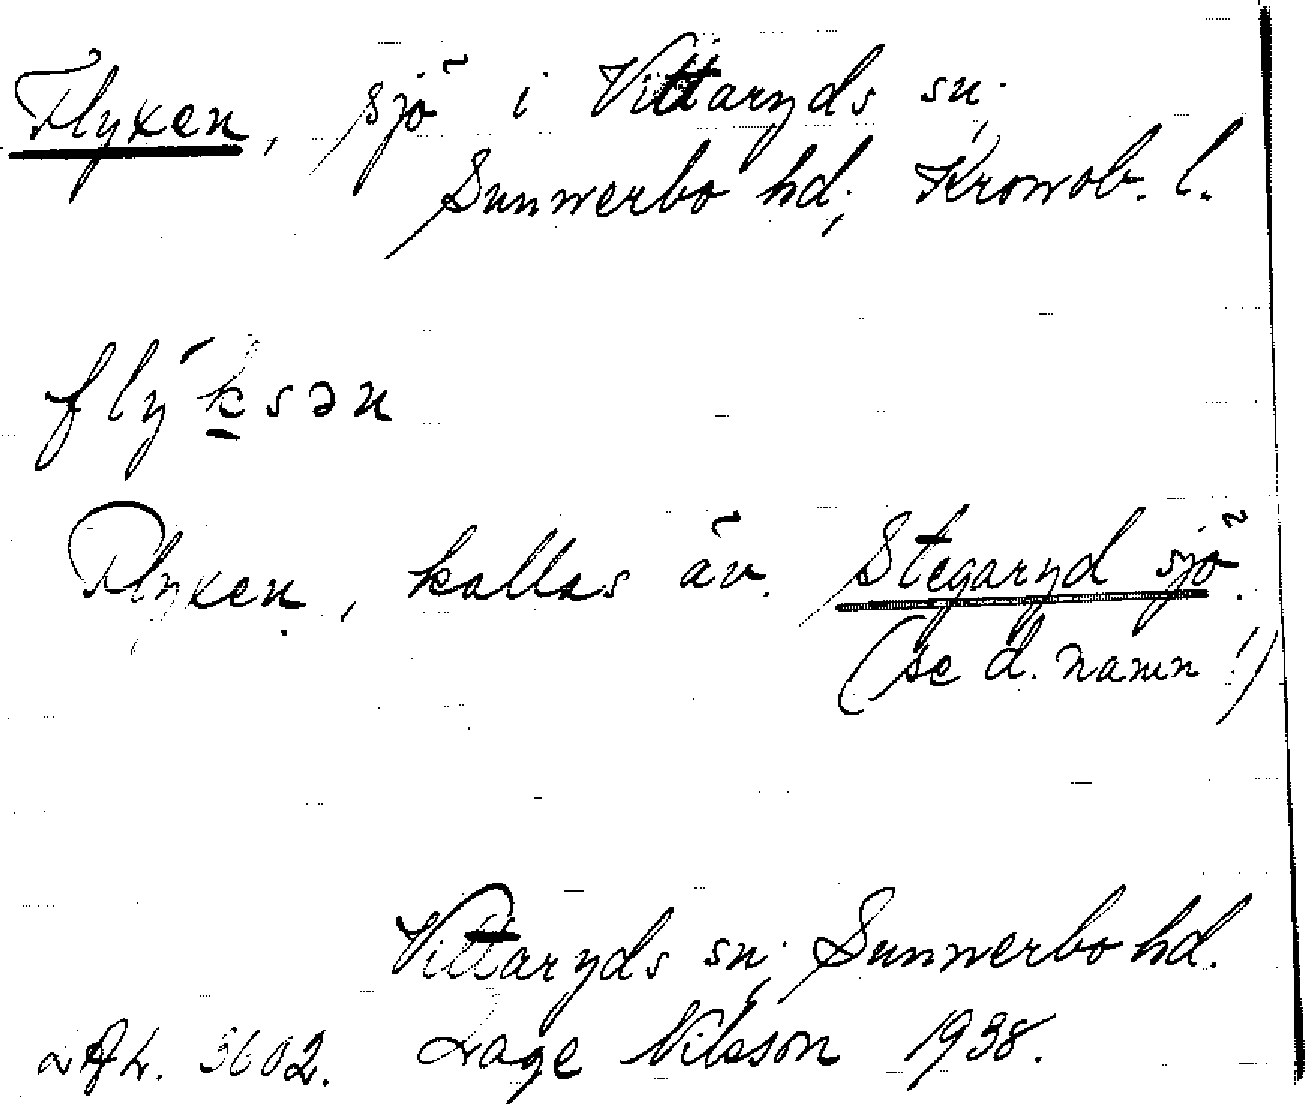 Flyxen, sjö i Vittaryds sn;
Sunnerbo hd; Kronob. l.
flýksən
Flyxen, kallas äv. Stegaryd sjö.
(se d. namn!)
Vittaryds sn; Sunnerbo hd.
3602. Lage Nilsson 1938.